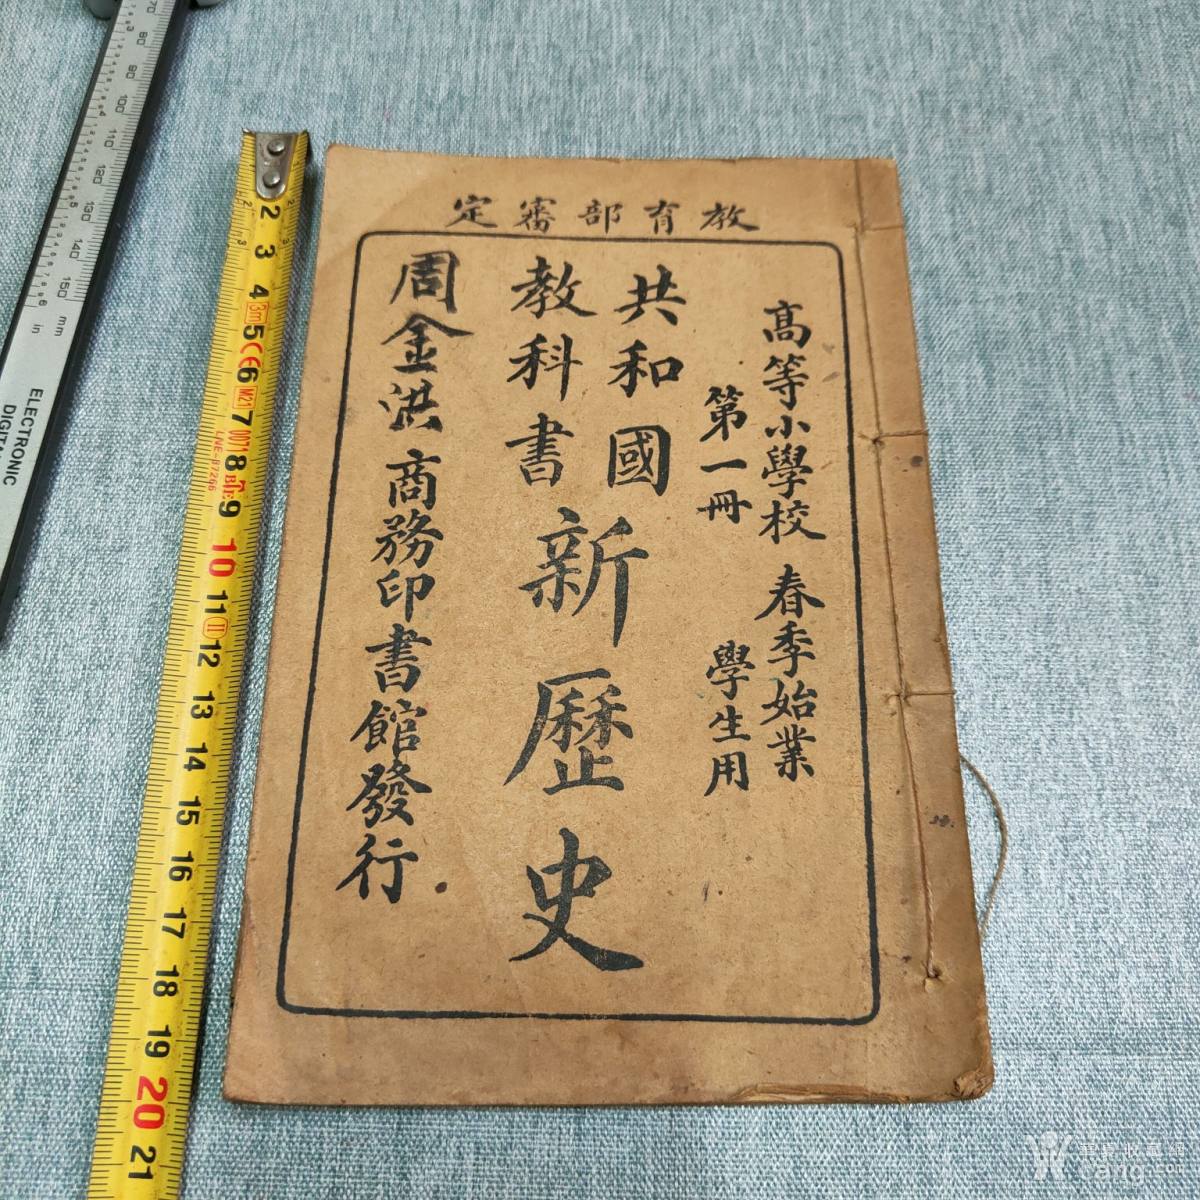 教育部審定
高等小學校 春季始業
第一冊 學生用
共和國
教科書
新歷史
周金洪 商務印書館發行
2 3 4 5 6 7 8 9 10 11 12 13 14 15 16 17 18 19 20 21
3m
CE
M21
0071
II
70 80 90 100 110 120 130 140 150 mm
6 in
ELECTRONIC